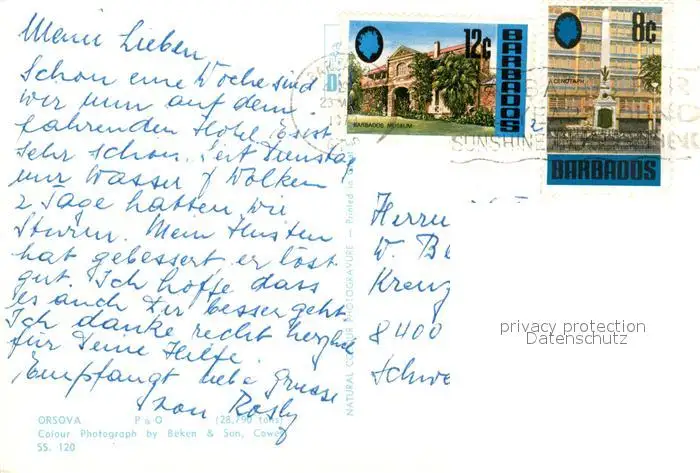 Meine Lieben
Schon eine Woche sind
wir nun auf dem
fahrenden Hotel. Es ist
sehr schön. Seit Dienstag
nur Wasser & Wolken
2 Tage hatten wir
Sturm. Mein Husten
hat gebessert er löst
gut. Ich hoffe dass
es auch Dir besser geht
Ich danke recht herzlich
für Deine Hilfe.
Empfangt liebe Grüsse
von Rosly
ORSOVA P & O (28,790 tons)
Colour Photograph by Beken & Son, Cowes
SS. 120
NATURAL COLOUR PHOTOGRAVURE — Printed in
12c
BARBADOS
BARBADOS MUSEUM
8c
CENOTAPH
BARBADOS
SUNSHINE
Herrn
W. Be
Kreuz
8400
Schwe
privacy protection
Datenschutz